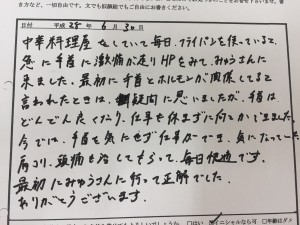 き方など、一切自由です。文でも似顔絵でもご自由にお書きください。
日付 平成 28年 6月 30日
中華料理屋をしていて毎日、フライパンを使っていると、
急に手首に激痛が走りHPをみて、みゅうさんに
来ました。最初に手首とホルモンが関係してると
言われたときは、疑問に思いましたが、手首は
どんどん良くなり、仕事も休まずに何とかできました。
今では、手首を気にせず仕事ができ、気になっていた
肩こり、頭痛も治してもらって、毎日快適です。
最初にみゅうさんに行って正解でした。
ありがとうございます。
でしょうか □はい イニシャルなら可 □年齢はダメ